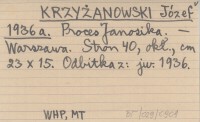 KRZYŻANOWSKI Józef
1936 a. Proces Janosika. —
Warszawa. Stron 40, okł., cm
23 x 15. Odbitka z: jw. 1936.
WHP, MT